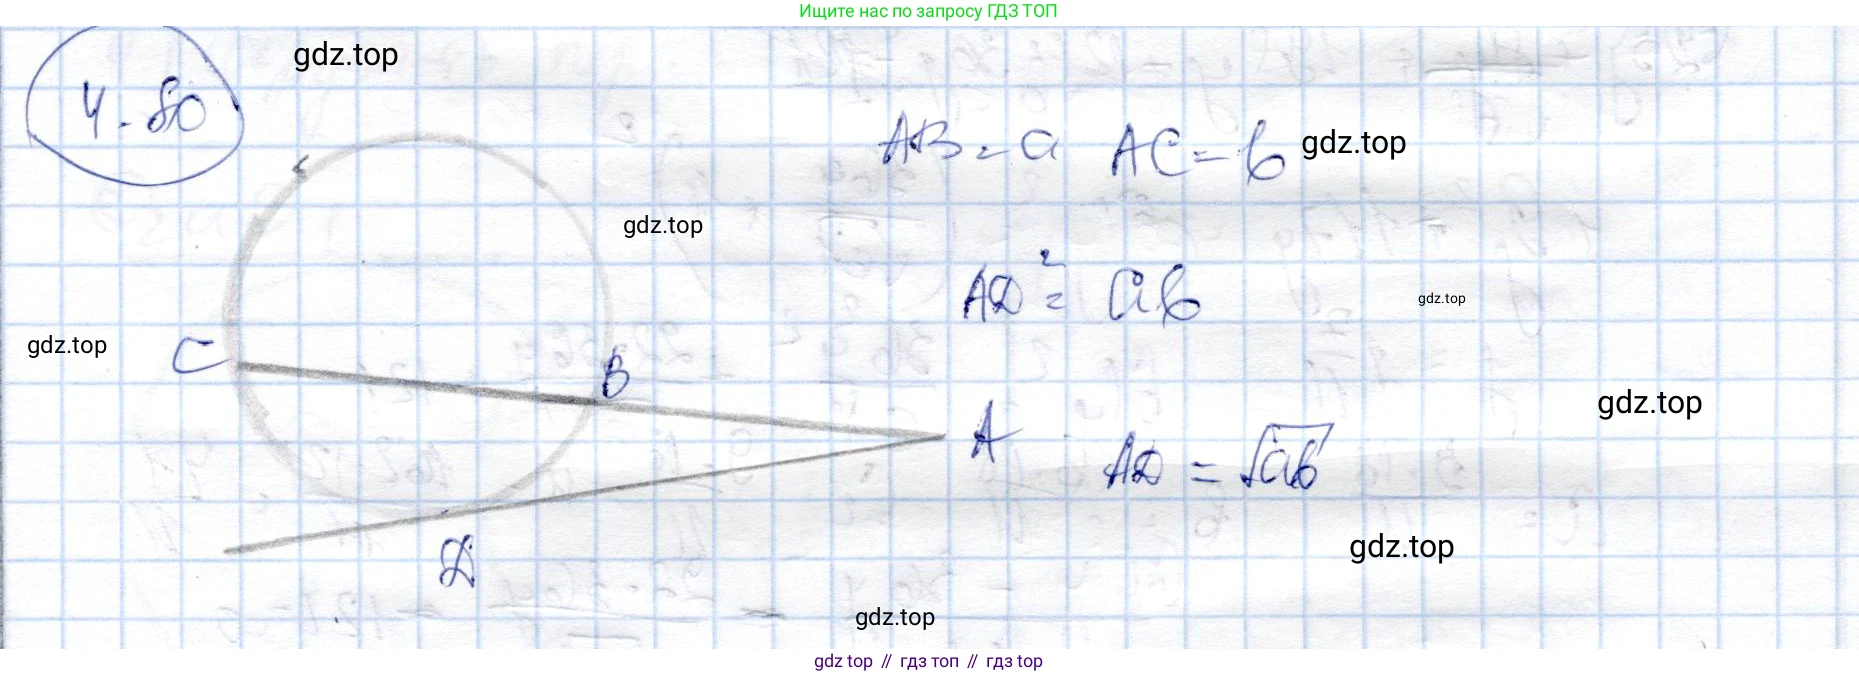 Ищите нас по запросу ГДЗ ТОП
gdz.top
4.80
AB = a AC = b gdz.top
gdz.top
AD² = ab
gdz.top
gdz.top
C
B
gdz.top
A
AD = √ab
gdz.top
D
gdz.top
gdz top // гдз топ // гдз top